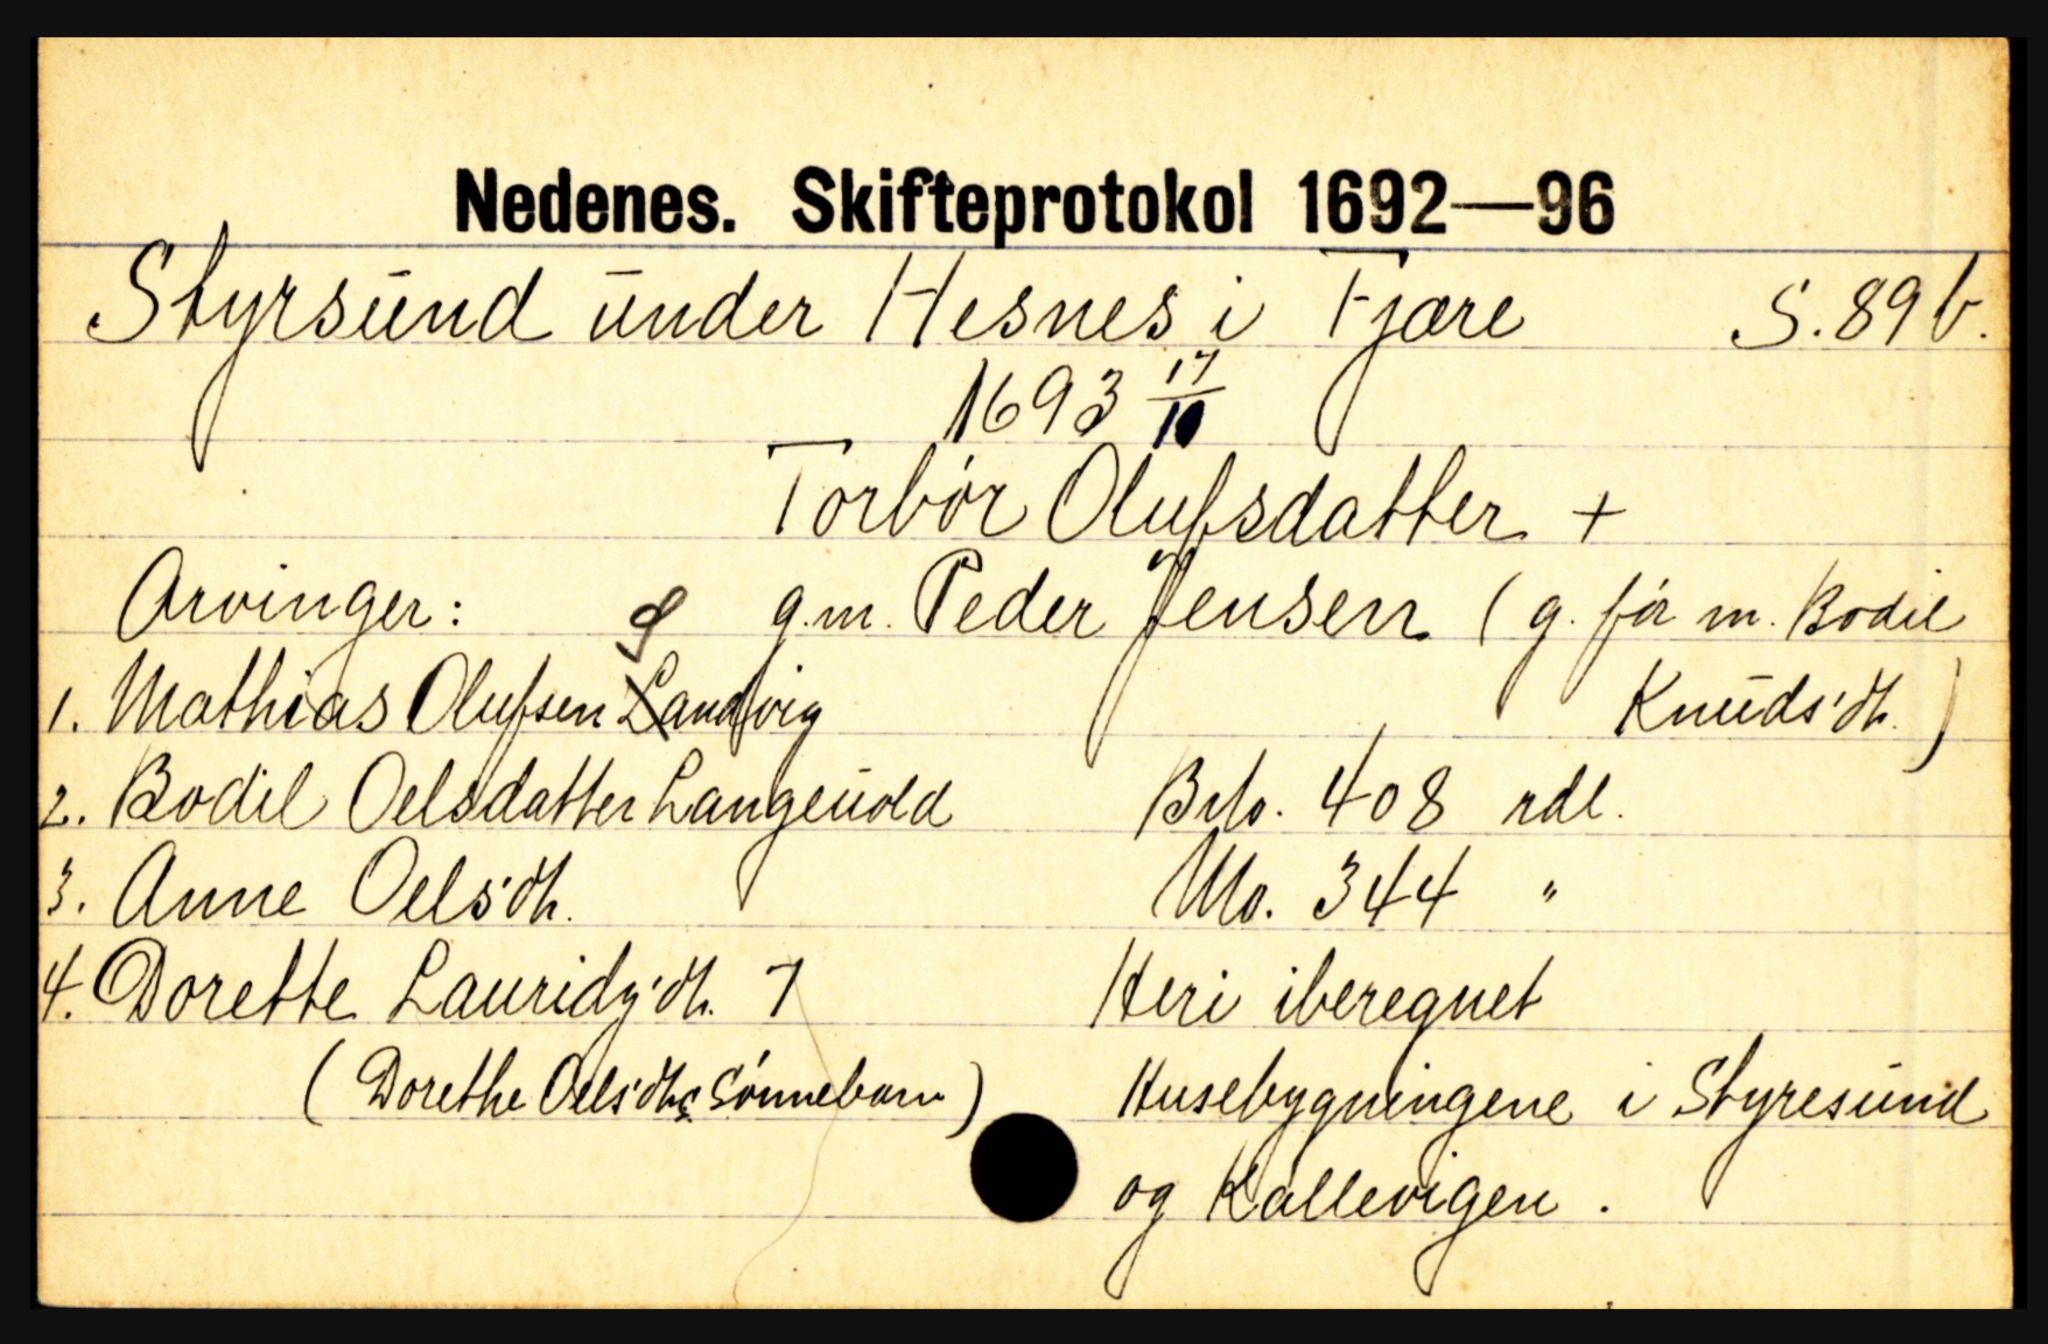 Nedenes. Skifteprotokol 1692—96
Styrsund under Hesnes i Fjære S. 89 b.
1693 17/10
Torbór Olufsdatter +
Arvinger: g.m. Peder Jensen (g. fór m. Bodil
1. Mathias Olufsen Landvig Knuds'dtr.)
2. Bodil Oelsdatter Langeuold Brto. 408 rdl.
3. Anne Oels'dtr. Nto. 344 "
4. Dorette Lauridz'dtr. † Heri iberegnet
(Dorethe Oels'dtrs Sónnebarn) Husebygningene i Styresund
og Kallevigen.